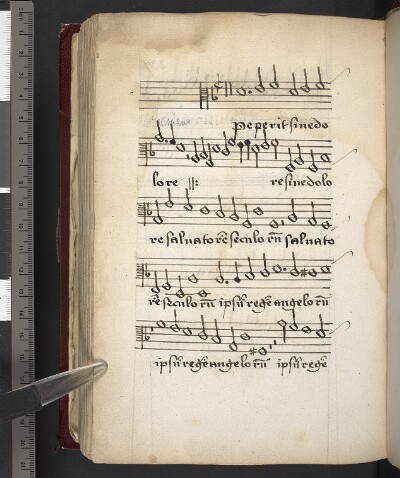 Peperit sinedo
lore :||: re sinedolo
re saluatorē seculorū saluato
rē seculorū ipsū regē angelorū
ipsū regē angelorū ipsū regē